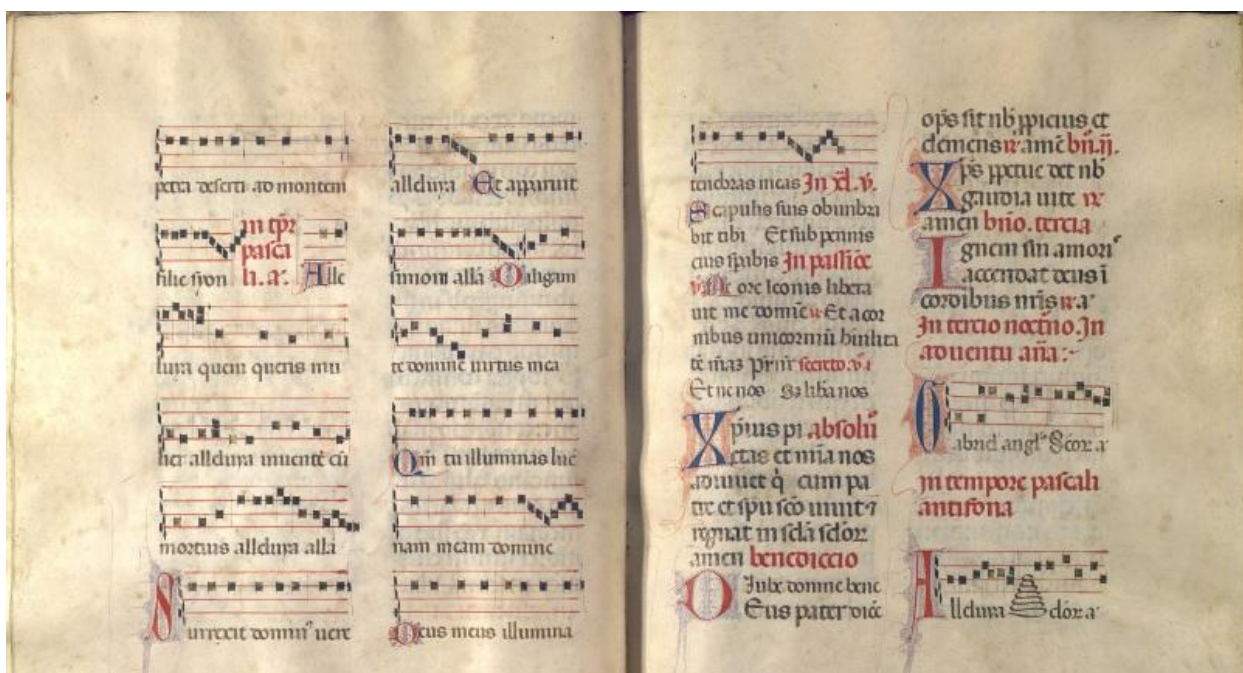 petra deserti ad montem
filie syon In tp̄r
pasca
li. a. Alle
luya quem queris mu
lier alleluya uiuentē cū
mortuis alleluya allā
Surrexit domin⁹ uere
alleluya Et apparuit
simoni allā Diligam
te domine uirtus mea
Qm̄ tu illuminas luc̄
nam meam domine
Deus meus illumina
tenebras meas In xl. v.
Scapulis suis obumbra
bit tibi Et sub pennis
eius spabis In passiōe
v. De ore leonis libera
uit me domine r Et a cor
nibus unicorniū humilita
tē meaz Pr̄ nr̄ secreto. v.
Et ne nos Sz libanos
Xp̄ius pi absolu
ctas et mīa nos
adiuuet q̄ cum pa
tre et spū sc̄o uiuit ⁊
regnat in scl̄a scl̄orz
amen benediccio
Iube domne bene
Deus pater
op̄s sit nb̄ ppicius et
clemens r amē bn̄. ii.
Xp̄s ppetue det nb̄
gaudia uite r
amen bn̄o. tercia
Ignem sui amoris
accendat deus ī
cordibus nr̄is r a
In tercio noct̄no. In
aduentu an̄a :-
Gabriel angl̄s
In tempore pascali
antifona
Alleluya